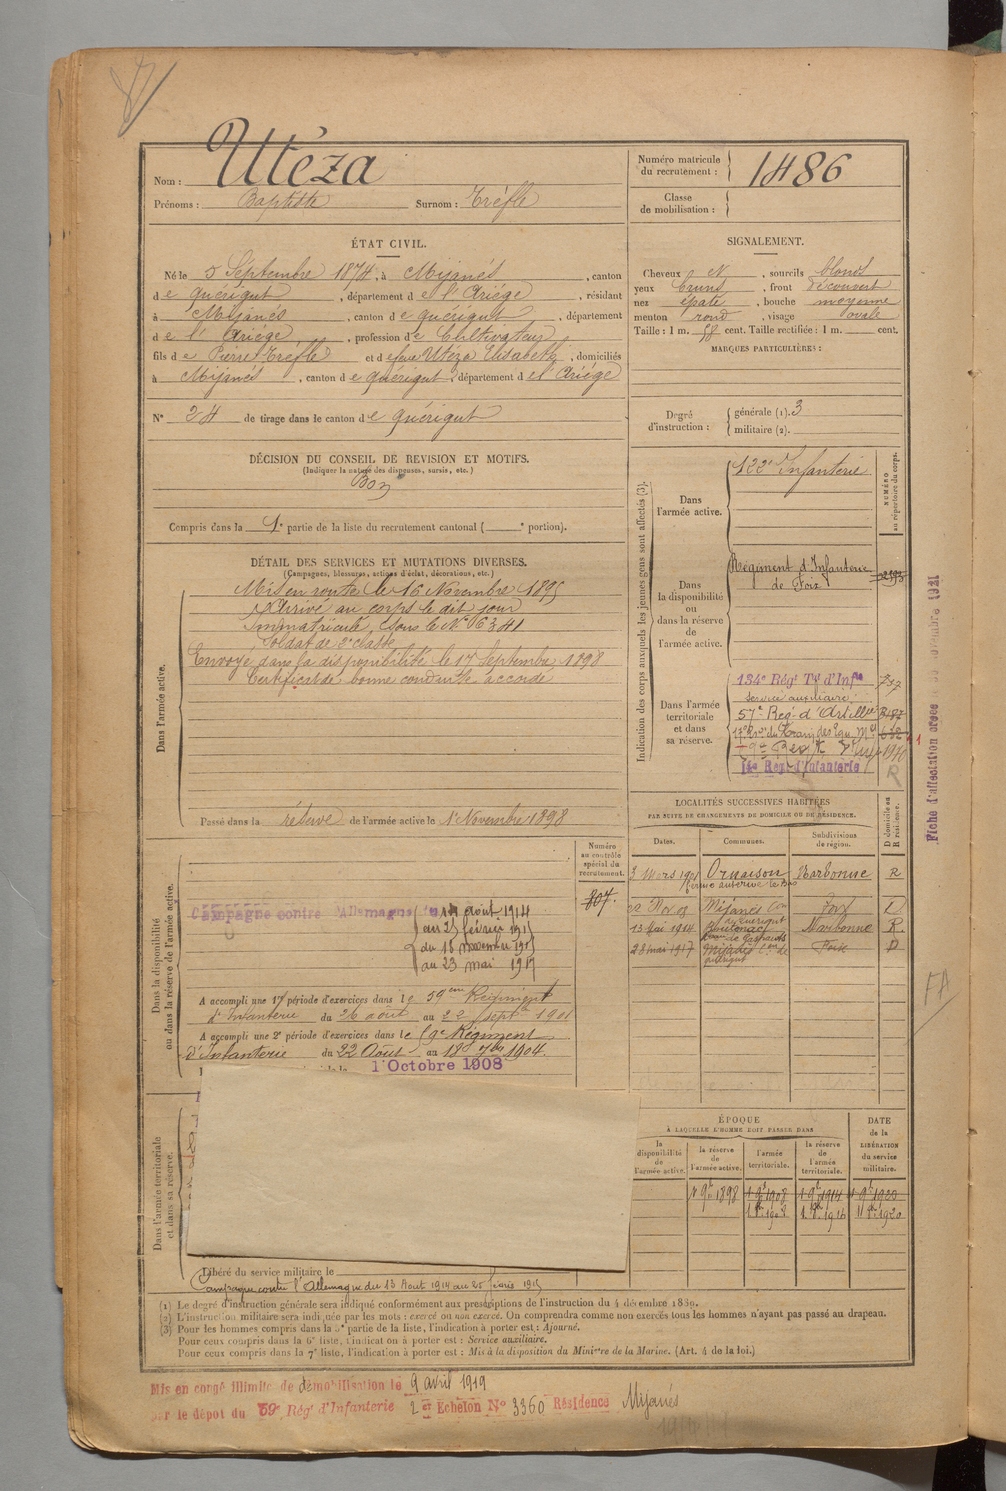 Nom : Utéza
Prénoms : Baptiste Surnom : Tréflé
Numéro matricule du recrutement : 1486
Classe de mobilisation :
ÉTAT CIVIL.
Né le 5 Septembre 1874, à Mijanés, canton
de Quérigut, département de l'Ariége, résidant
à Mijanés, canton de Quérigut, département
de l'Ariége, profession de Cultivateur
fils de Pierre Tréflé et de feue Utéza Elisabeth, domiciliés
à Mijanés, canton de Quérigut, département de l'Ariége
N° 24 de tirage dans le canton de Quérigut
SIGNALEMENT.
Cheveux N, sourcils blonds
yeux bruns, front découvert
nez épaté, bouche moyenne
menton rond, visage ovale
Taille : 1 m. 58 cent. Taille rectifiée : 1 m. cent.
MARQUES PARTICULIÈRES :
Degré d'instruction : générale (1). 3
militaire (2).
DÉCISION DU CONSEIL DE REVISION ET MOTIFS.
(Indiquer la nature des dispenses, sursis, etc.)
Bon
Compris dans la 1e partie de la liste du recrutement cantonal ( e portion).
DÉTAIL DES SERVICES ET MUTATIONS DIVERSES.
(Campagnes, blessures, actions d'éclat, décorations, etc.)
Dans l'armée active.
Mis en route le 16 Novembre 1895
Arrivé au corps le dit jour
Immatriculé sous le N° 6341
Soldat de 2e classe
Envoyé dans la disponibilité le 17 Septembre 1898
Certificat de bonne conduite accordé
Passé dans la réserve de l'armée active le 1er Novembre 1898
Indication des corps auxquels les jeunes gens sont affectés (3).
NUMÉRO au répertoire du corps.
Dans l'armée active.
122e Infanterie
Dans la disponibilité ou dans la réserve de l'armée active.
Régiment d'Infanterie
de Foix
Dans l'armée territoriale et dans sa réserve.
134e Régt Tal d'Infie
service auxiliaire
57e Rég. d'Artillie
14e Rég. d'Infanterie
R
Fiche d'affectation créée novembre 1921
LOCALITÉS SUCCESSIVES HABITÉES
PAR SUITE DE CHANGEMENTS DE DOMICILE OU DE RÉSIDENCE.
Dates. Communes. Subdivisions de région. D domicile ou R résidence.
3 Mars 1901 Ornaison Narbonne R
Mijanés Con de Quérigut Foix D
13 Mai 1914 Narbonne R.
28 mai 1917 Mijanés Con de Quérigut Foix D
FA
Dans la disponibilité ou dans la réserve de l'armée active.
Numéro au contrôle spécial du recrutement.
807.
Campagne contre l'Allemagne
août 1914
au 25 février 1915
du 18 novembre 1915
au 23 mai 1917
A accompli une 1re période d'exercices dans le 59eme Régiment
d'Infanterie du 26 août au 22 septbre 1901
A accompli une 2e période d'exercices dans le 59e Régiment
d'Infanterie du 22 Août au 18 7bre 1904.
1 Octobre 1908
Dans l'armée territoriale et dans sa réserve.
ÉPOQUE
À LAQUELLE L'HOMME DOIT PASSER DANS
la disponibilité de l'armée active.
la réserve de l'armée active.
l'armée territoriale.
la réserve de l'armée territoriale.
DATE de la LIBÉRATION du service militaire.
1 9bre 1898 1 9bre 1908 1 9bre 1914 1 9bre 1920
Libéré du service militaire le
Campagne contre l'Allemagne du 13 Août 1914 au 25 février 1915
(1) Le degré d'instruction générale sera indiqué conformément aux prescriptions de l'instruction du 4 décembre 1889.
(2) L'instruction militaire sera indiquée par les mots : exercé ou non exercé. On comprendra comme non exercés tous les hommes n'ayant pas passé au drapeau.
(3) Pour les hommes compris dans la 5e partie de la liste, l'indication à porter est : Ajourné.
Pour ceux compris dans la 6e liste, l'indication à porter est : Service auxiliaire.
Pour ceux compris dans la 7e liste, l'indication à porter est : Mis à la disposition du Ministre de la Marine. (Art. 4 de la loi.)
Mis en congé illimité de démobilisation le 9 avril 1919
par le dépôt du 59e Régt d'Infanterie 2e Echelon N° 3360 Résidence Mijanés